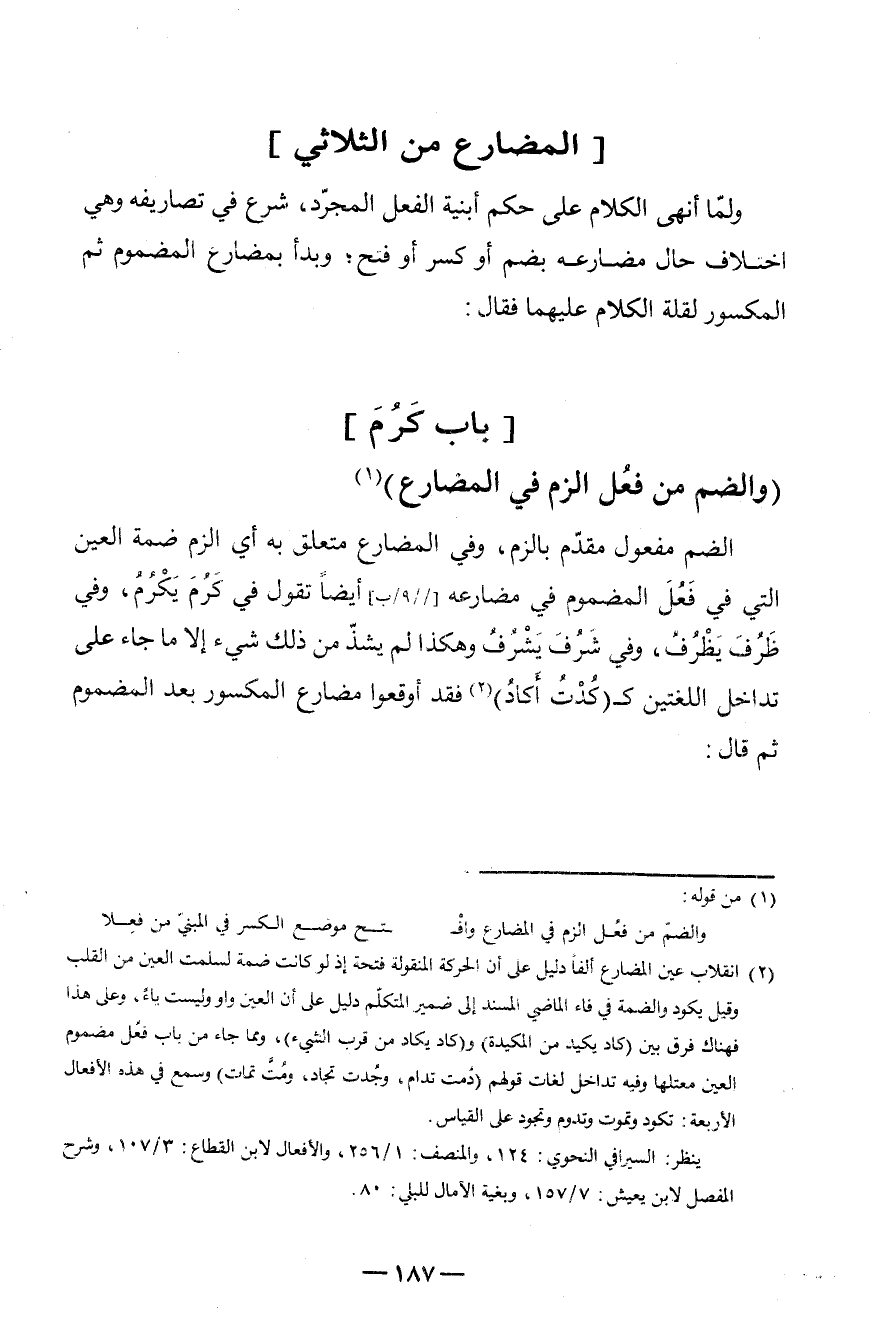 [ المضارع من الثلاثي ]
ولمّا أنهى الكلام على حكم أبنية الفعل المجرّد، شرع في تصاريفه وهي
اختلاف حال مضارعه بضم أو كسر أو فتح؛ وبدأ بمضارع المضموم ثم
المكسور لقلة الكلام عليهما فقال :
[ باب كَرُمَ ]
(والضم من فعُل الزم في المضارع)(١)
الضم مفعول مقدّم بالزم، وفي المضارع متعلق به أي الزم ضمة العين
التي في فَعُلَ المضموم في مضارعه [//٩/ب] أيضاً تقول في كَرُمَ يَكْرُمُ، وفي
ظَرُفَ يَظْرُفُ، وفي شَرُفَ يَشْرُفُ وهكذا لم يشذّ من ذلك شيء إلا ما جاء على
تداخل اللغتين كـ(كُدْتُ أَكادُ)(٢) فقد أوقعوا مضارع المكسور بعد المضموم
ثم قال :
(١) من قوله:
والضمّ من فعُـل الزم في المضارع وافْـ ـتـح موضـع الـكسر في المبنيّ من فعِـلا
(٢) انقلاب عين المضارع ألفاً دليل على أن الحركة المنقولة فتحة إذ لو كانت ضمة لسلمت العين من القلب
وقيل يكود والضمة في فاء الماضي المسند إلى ضمير المتكلّم دليل على أن العين واو وليست ياءً، وعلى هذا
فهناك فرق بين (كاد يكيد من المكيدة) و(كاد يكاد من قرب الشيء)، ومما جاء من باب فعُل مضموم
العين معتلها وفيه تداخل لغات قولهم (دُمت تدام، وجُدت تجاد، ومُتَّ تمات) وسمع في هذه الأفعال
الأربعة: تكود وتموت وتدوم وتجود على القياس.
ينظر: السيرافي النحوي: ١٢٤، والمنصف: ٢٥٦/١، والأفعال لابن القطاع: ١٠٧/٣، وشرح
المفصل لابن يعيش: ١٥٧/٧، وبغية الآمال للبلي: ٨٠.
— ١٨٧ —